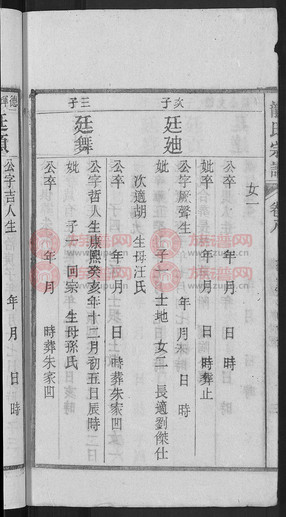 宗譜 卷八
女一
公卒 年 月 日 時葬止
妣卒 年 月 日 時
次子
廷廸
公字殿聲生 年 月 日 時
妣 子一 士地 女二 長適劉傑仕
次適胡 生母汪氏
公卒 年 月 日 時葬朱家凹
三子
廷舞
公字哲人生康熙癸亥年十二月初五日辰時
妣 子 回宗 生母孫氏
公卒 年 月 日 時葬朱家凹
公字吉人生 年 月 日 時
族譜网